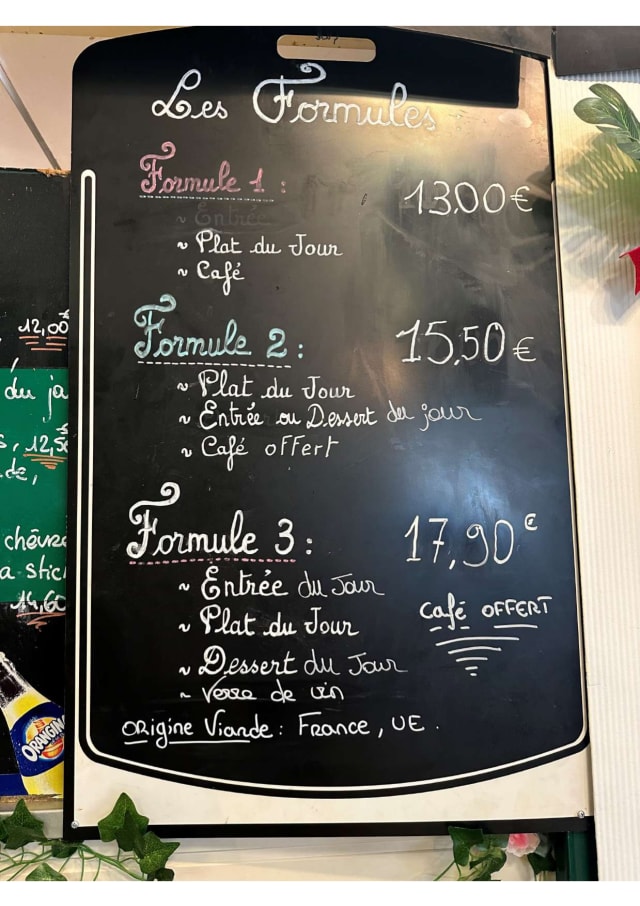 Les Formules
Formule 1 : 13,00 €
~ Entrée
~ Plat du Jour
~ Café
Formule 2 : 15,50 €
~ Plat du Jour
~ Entrée ou Dessert du jour
~ Café offert
Formule 3 : 17,90 €
~ Entrée du Jour
~ Plat du Jour
~ Dessert du Jour
~ Verre de vin
café OFFERT
Origine Viande : France, UE.
12,00
du
12,50
de,
chèvre
a
14,60
ORANGINA